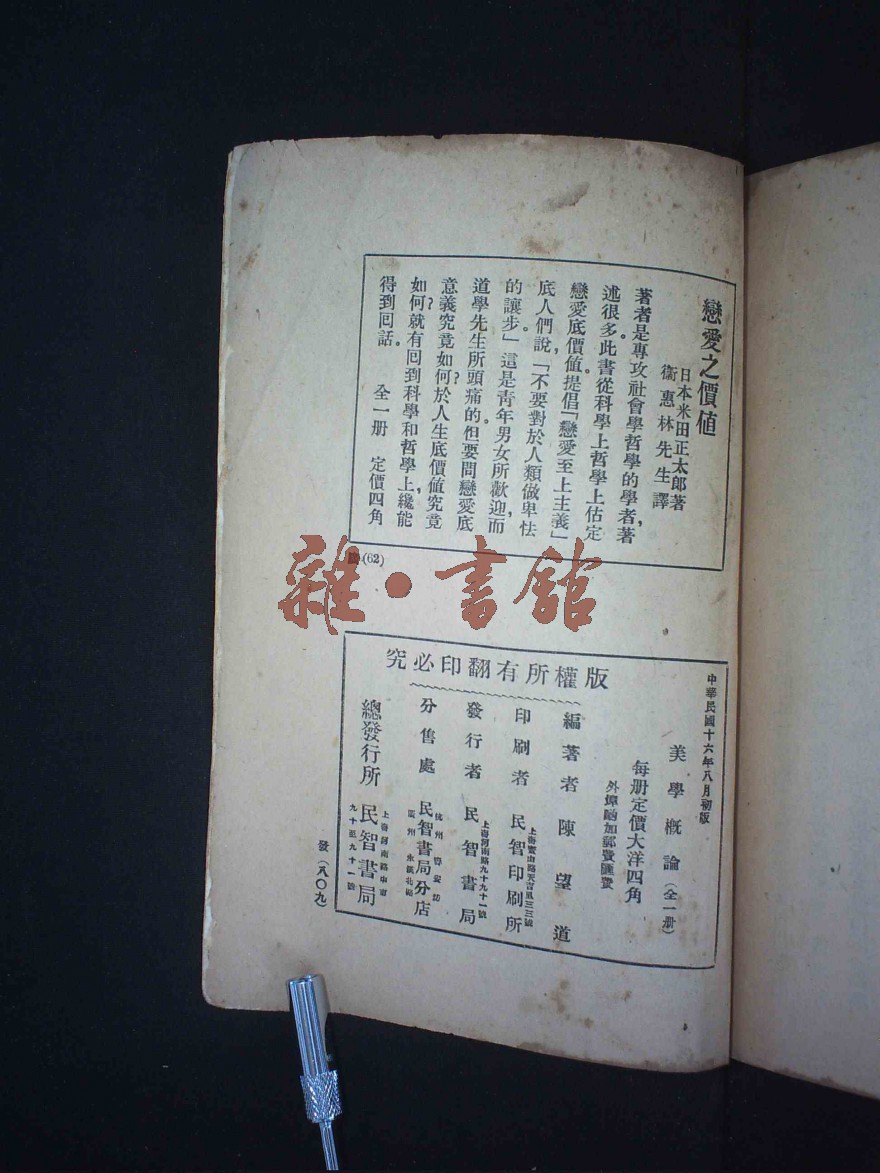 戀愛之價値
日本米田正太郎著
衞惠林先生譯
著者是專攻社會學哲學的學者，著
述很多。此書從科學上哲學上估定
戀愛底價値。提倡「戀愛至上主義」
底人們，說「不要對於人類做卑怯
的讓步」。這是靑年男女所歡迎，而
道學先生所頭痛的。但要問戀愛底
意義究竟如何？於人生底價値究竟
如何？就有回到科學和哲學上，纔能
得到囘話。
全一册 定價四角
(62)
雜·書館
中華民國十六年八月初版
版權所有翻印必究
美學概論（全一册）
每册定價大洋四角
外埠酌加郵費匯費
編著者 陳望道
印刷者 民智印刷所
發行者 上海河南路九十九十一號 民智書局
分售處 民智書局分店
總發行所 民智書局
上海河南路中市
九十至九十一號
發（八〇九）